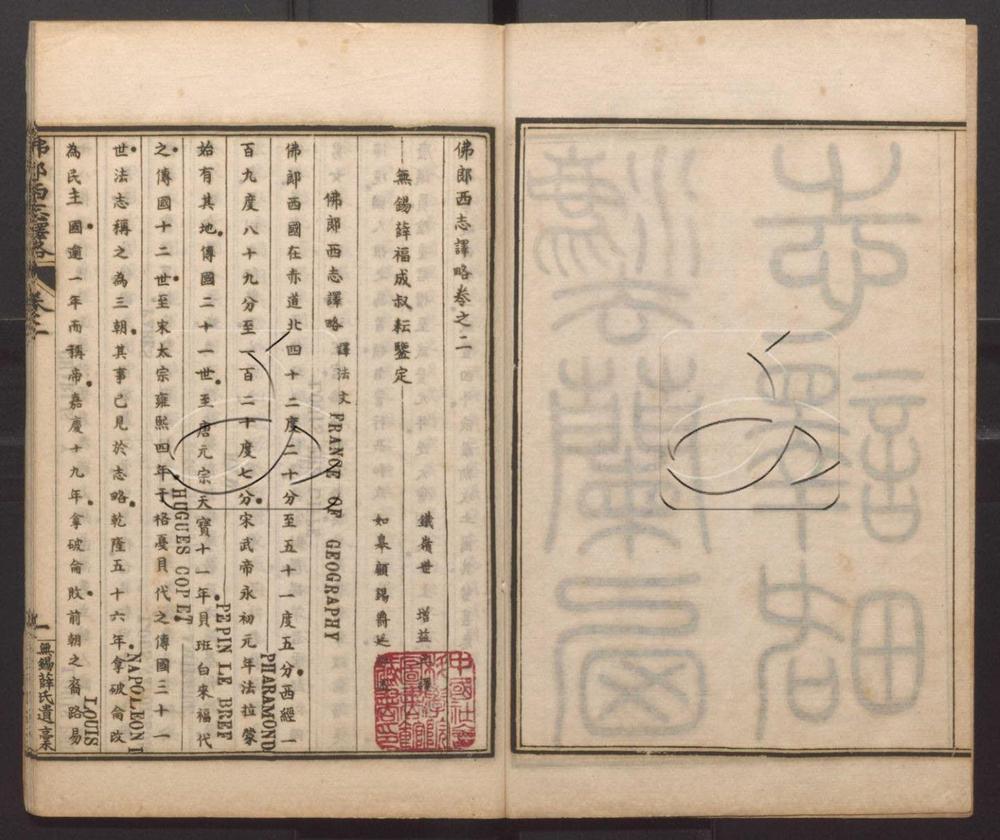 佛郎西志譯略卷之二
無錫薛福成叔耘鑒定
鐵嶺世 增益
如皋顧錫爵延
佛郎西志譯略 譯法文 FRANCE OF GEOGRAPHY
佛郎西國在赤道北四十二度二十分至五十一度五分西經一
百九度八十九分至一百二十度七分宋武帝永初元年法拉蒙 PHARAMOND
始有其地傳國二十一世至唐元宗天寶十一年貝班白來福代 PEPIN LE BREF
之傳國十二世至宋太宗雍熙四年于格戞貝代之傳國三十一 HUGUES COPET
世法志稱之為三朝其事已見於志略乾隆五十六年拿破侖改 NAPOLEON I
為民主國逾一年而稱帝嘉慶十九年拿破侖敗前朝之裔路易 LOUIS
佛郎西志譯略 卷二
一
無錫薛氏遺稾